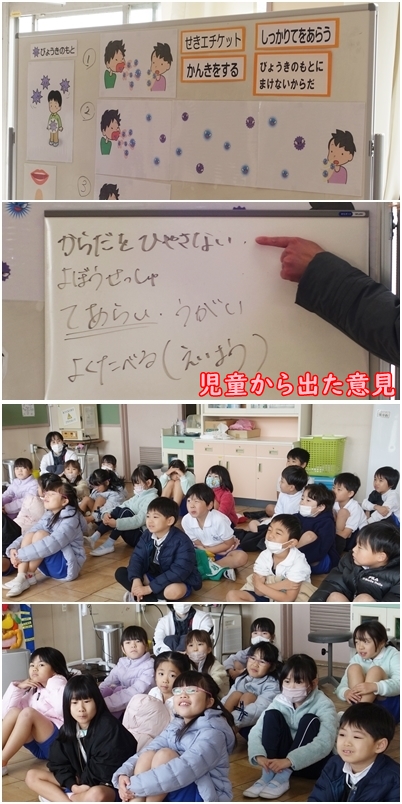 びょうきのもと
①
せきエチケット
しっかりてをあらう
かんきをする
びょうきのもとに
まけないからだ
②
③
からだをひやさない.
よぼうせっしゃ
てあらい・うがい
よくたべる(えいよう)
児童から出た意見